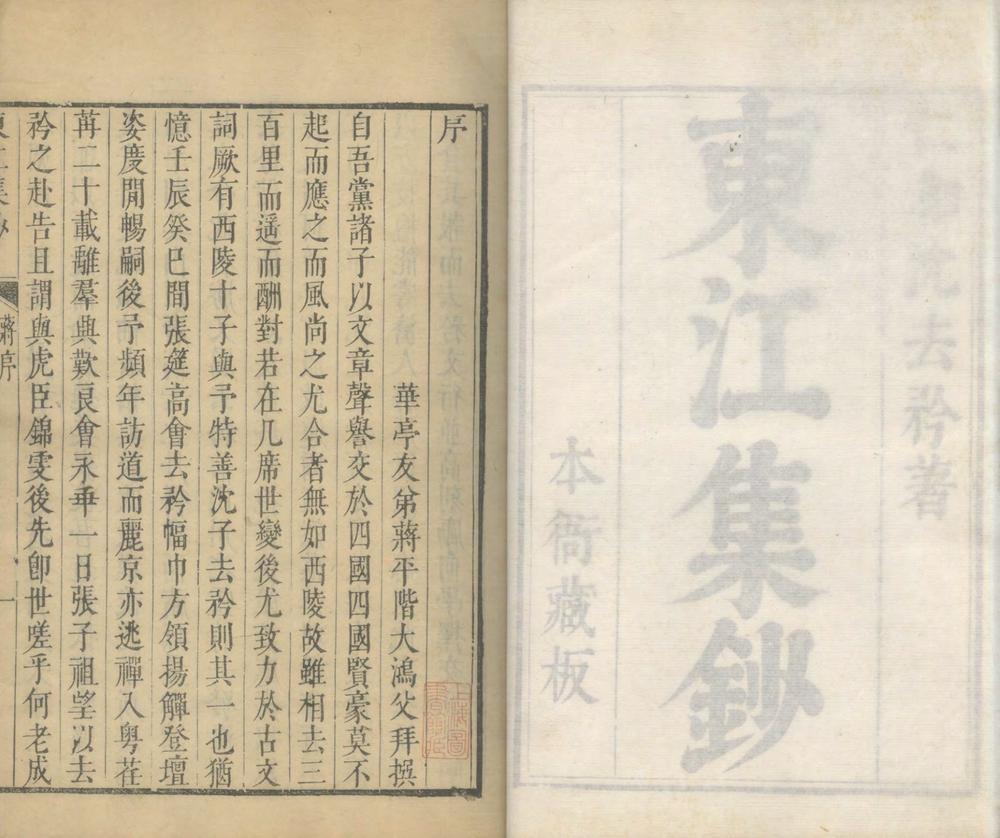 沈去矜著
東江集鈔
本衙藏板
序
華亭友弟蔣平階大鴻父拜撰
自吾黨諸子以文章聲譽交於四國四國賢豪莫不
起而應之而風尚之尤合者無如西陵故雖相去三
百里而遥而酬對若在几席世變後尤致力於古文
詞厥有西陵十子與予特善沈子去矜則其一也猶
憶壬辰癸巳間張筵高會去矜幅巾方領揚觶登壇
姿度閒暢嗣後予頻年訪道而麗京亦逃禪入粤荏
苒二十載離羣興歎良會永乖一日張子祖望以去
矜之赴告且謂與虎臣錦雯後先卽世嗟乎何老成
東江集鈔
蔣序
一
上海圖書館藏